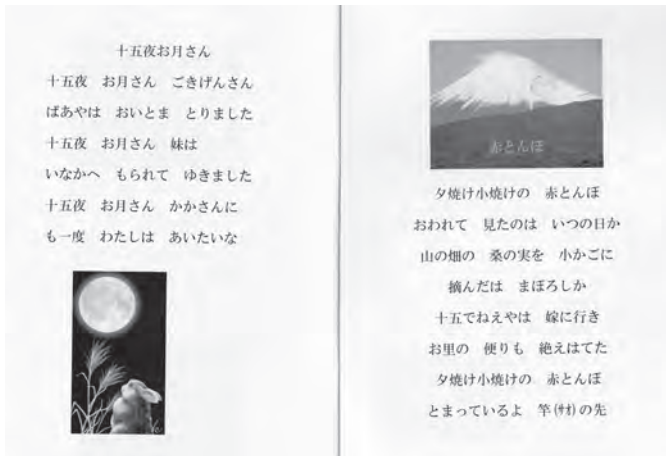 十五夜お月さん
十五夜　お月さん　ごきげんさん
ばあやは　おいとま　とりました
十五夜　お月さん　妹は
いなかへ　もられて　ゆきました
十五夜　お月さん　かかさんに
も一度　わたしは　あいたいな
赤とんぼ
夕焼け小焼けの　赤とんぼ
おわれて　見たのは　いつの日か
山の畑の　桑の実を　小かごに
摘んだは　まぼろしか
十五でねえやは　嫁に行き
お里の　便りも　絶えはてた
夕焼け小焼けの　赤とんぼ
とまっているよ　竿(ｻｵ)の先